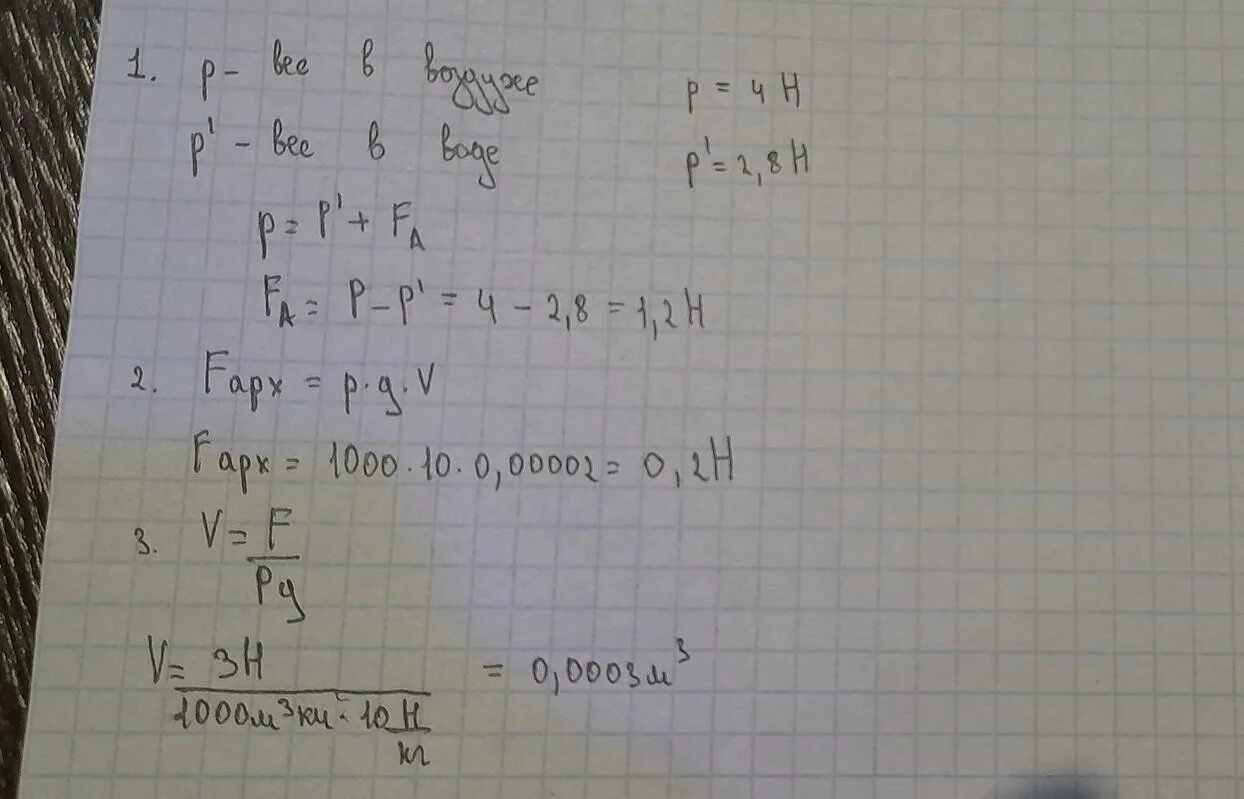 1. p - вес в воздухе p = 4 Н
p' - вес в воде p' = 2,8 Н
p = P' + F_A
F_A = P - p' = 4 - 2,8 = 1,2 Н
2. Fарх = p·g·V
Fарх = 1000·10·0,00002 = 0,2 Н
3. V = F / Pg
V = 3Н / = 0,0003 м³
1000м³ · 10 Н/кг